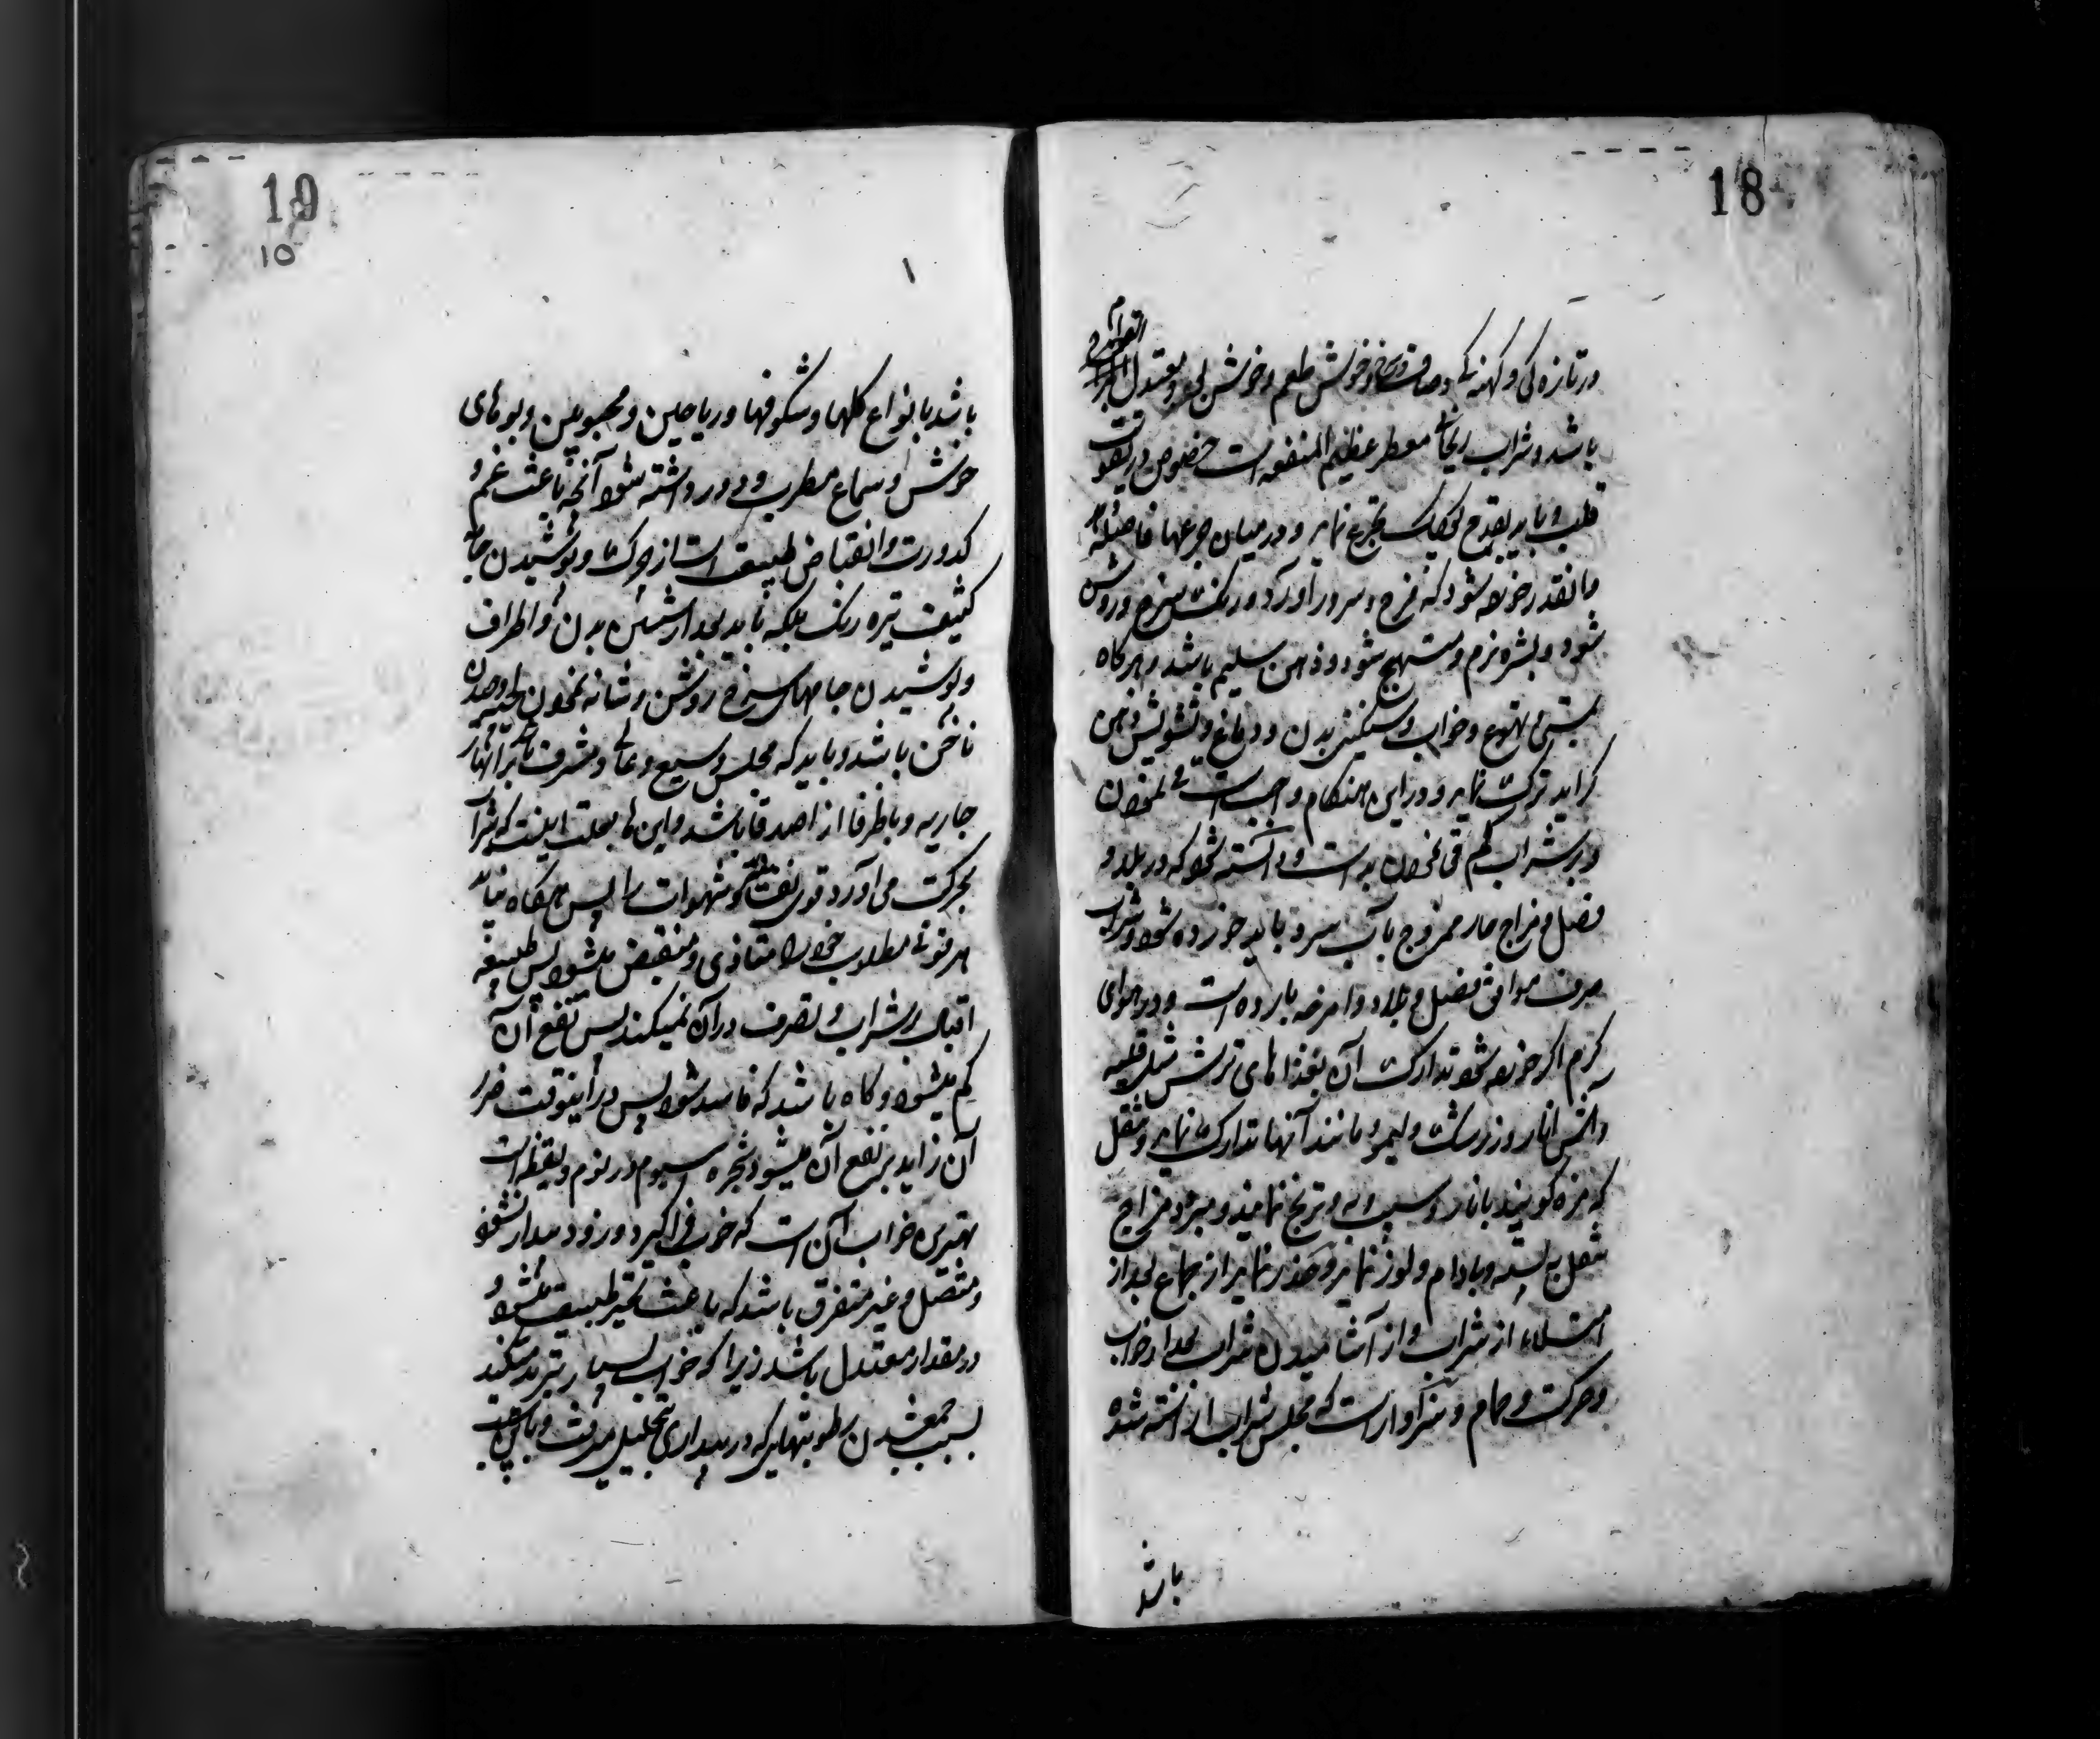 18
در تازه کی و کهنه کی و صاف و سرخ و خوش طعم و خوش بو و معتدل القوام
باشد و شراب ریحانی معطر عظیم المنفعه است خصوص در تقویت
قلب و باید بقدح کوچک تجرع نماید و در میان جرعها فاصله
و انقدر خورده شود که فرح و سرور آورد و رنک سرخ و روشن
شود و بشره نرم و متهیج شود و ذهن سلیم باشد و هر کاه
تهوع و خواب و سنکینی بدن و دماغ و تشویش ذهن
کراید ترک نماید و در این هنکام واجبست قی نمودن
و بر شراب کم قی نمودن بد است و دانسته شود که در بلد و
فصل و مزاج حار ممزوج بآب سرد باید خورده شود و شراب
صرف موافق فصل و بلاد و امزجه بارده است و در هوای
کرم اکر خورده شود تدارک آن بغذاهای ترش مثل قلیه
و آش انار و زرشک و لیمو و مانند آنها تدارک نماید و نقل
که مزه کویند بانار و سیب و به و ترنج نمایند و مبرود مزاج
نقل به پسته و بادام و لوز نماید و حذر نماید از جماع بعد از
امتلاء از شراب و از آشامیدن شراب بعد از خواب
و حرکت و حمام و سزاوار است که مجلس شراب آراسته شده
باشد
19
10
باشد بانواع کلها و شکوفها و ریاحین و محبوبین و بوهای
خوش و سماع مطرب و دور داشته شود آنچه باعث غم و
کدورت و انقباض طبیعت است از چرک و پوشیدن جامه
کثیف تیره رنک بلکه باید بعد از شستن بدن و اطراف
و پوشیدن جامهای سرخ روشن و شانه نمودن لحیه و چیدن
ناخن باشد و باید که مجلس وسیع و عالی و مشرف بر انهار
جاریه و با ظرفا از اصدقا باشد و این ها بعلت اینست که شراب
بحرکت می آورد قوی نفسانیه و شهوات را پس هرکاه نیاید
هر قوتی مطلوب خود را متاذی و منقبض میشود پس طبیعه
اقبال بر شراب و تصرف در آن نمیکند پس نفع آن
کم میشود و کاه باشد که فاسد شود پس در اینوقت ضرر
آن زاید بر نفع آن میشود شجره سیوم در نوم و یقظه است
بهترین خواب آن است که خوب فرا کیرد و زود بیدار نشود
و متصل و غیر متفرق باشد که باعث تحیر طبیعت میشود و
و در مقدار معتدل باشد زیرا که خواب بسیار تبرید میکند
بسبب جمع شدن رطوبتهائیکه در بیداری بتحلیل میرفت و باعث